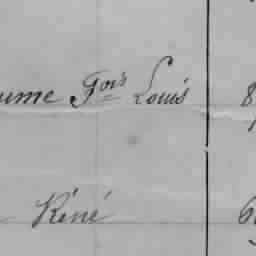 ume Fois Louis 8
René 6